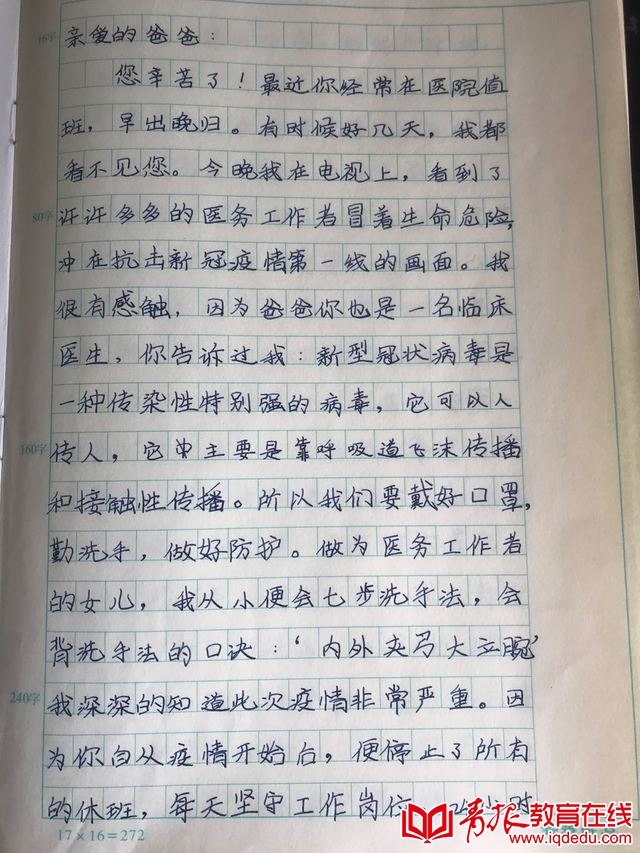 16字
亲爱的爸爸：
您辛苦了！最近你经常在医院值
班，早出晚归。有时候好几天，我都
看不见您。今晚我在电视上，看到了
80字
许许多多的医务工作者冒着生命危险，
冲在抗击新冠疫情第一线的画面。我
很有感触，因为爸爸你也是一名临床
医生，你告诉过我：新型冠状病毒是
一种传染性特别强的病毒，它可以人
160字
传人，它主要是靠呼吸道飞沫传播
和接触性传播。所以我们要戴好口罩，
勤洗手，做好防护。做为医务工作者
的女儿，我从小便会七步洗手法，会
背洗手法的口诀：‘内外夹弓大立腕’
240字
我深深的知道此次疫情非常严重。因
为你自从疫情开始后，便停止了所有
的休班，每天坚守工作岗位 24小时
17×16=272
教育在线
www.iqdedu.com